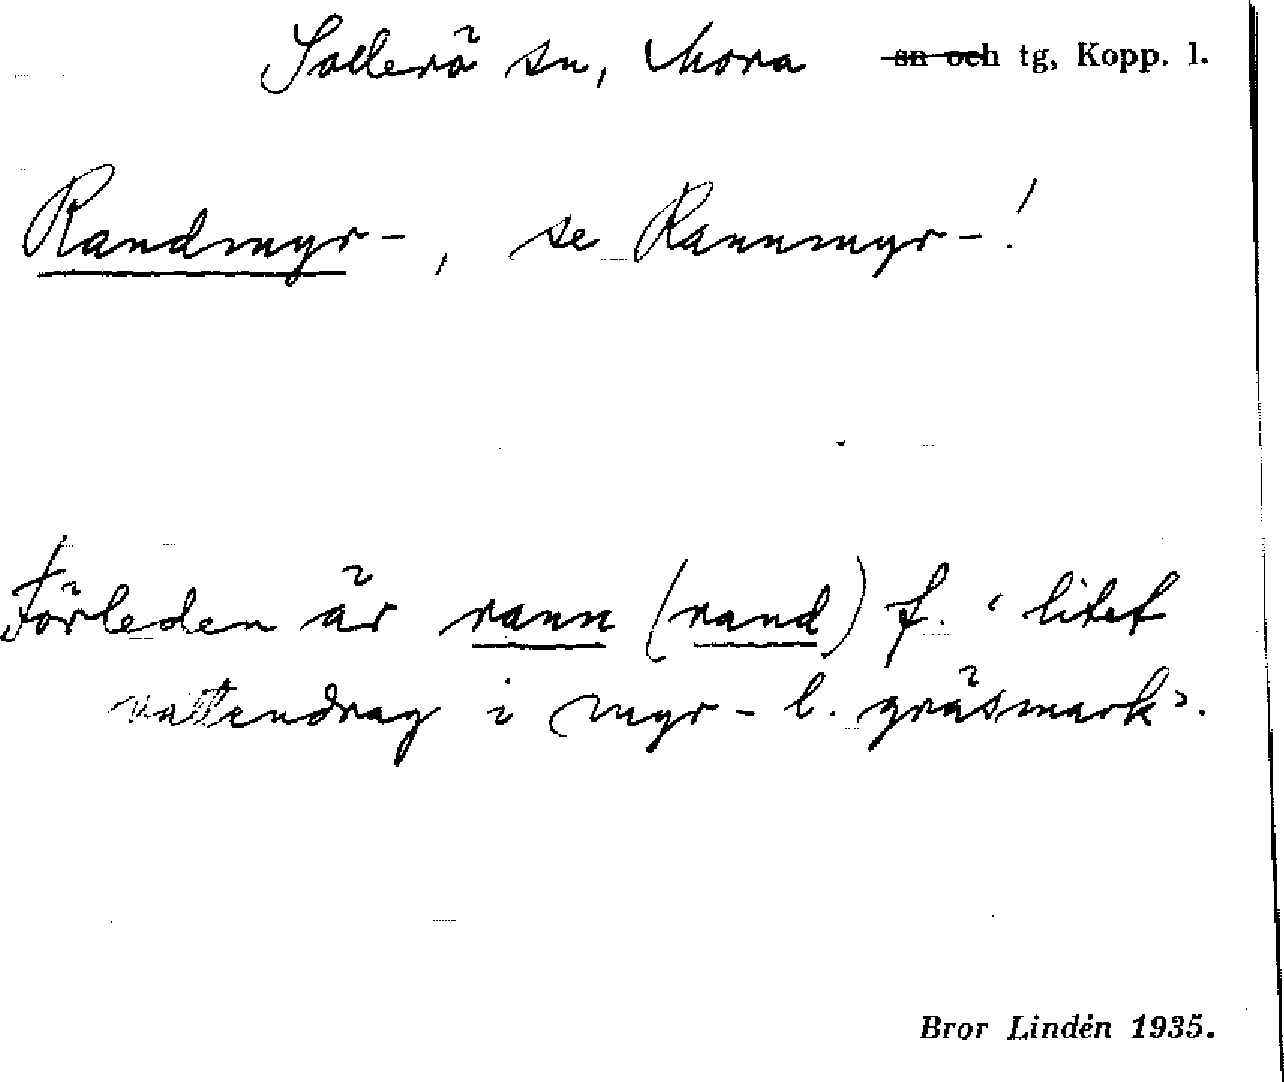 Sollerö sn, Mora sn och tg, Kopp. l.
Randmyr-, se Rannmyr-!
Förleden är rann (rand) f. 'litet
vattendrag i myr- l. gräsmark'.
Bror Lindén 1935.